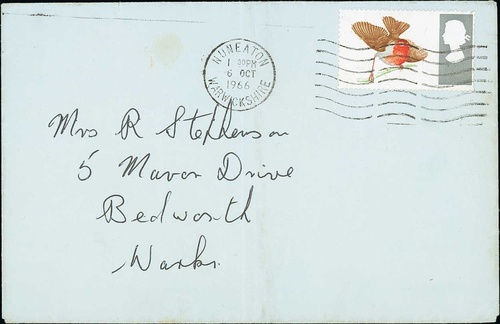 NUNEATON
1 30PM
6 OCT
1966
WARWICKSHIRE
Mrs R Stephenson
5 Manor Drive
Bedworth
Warks.